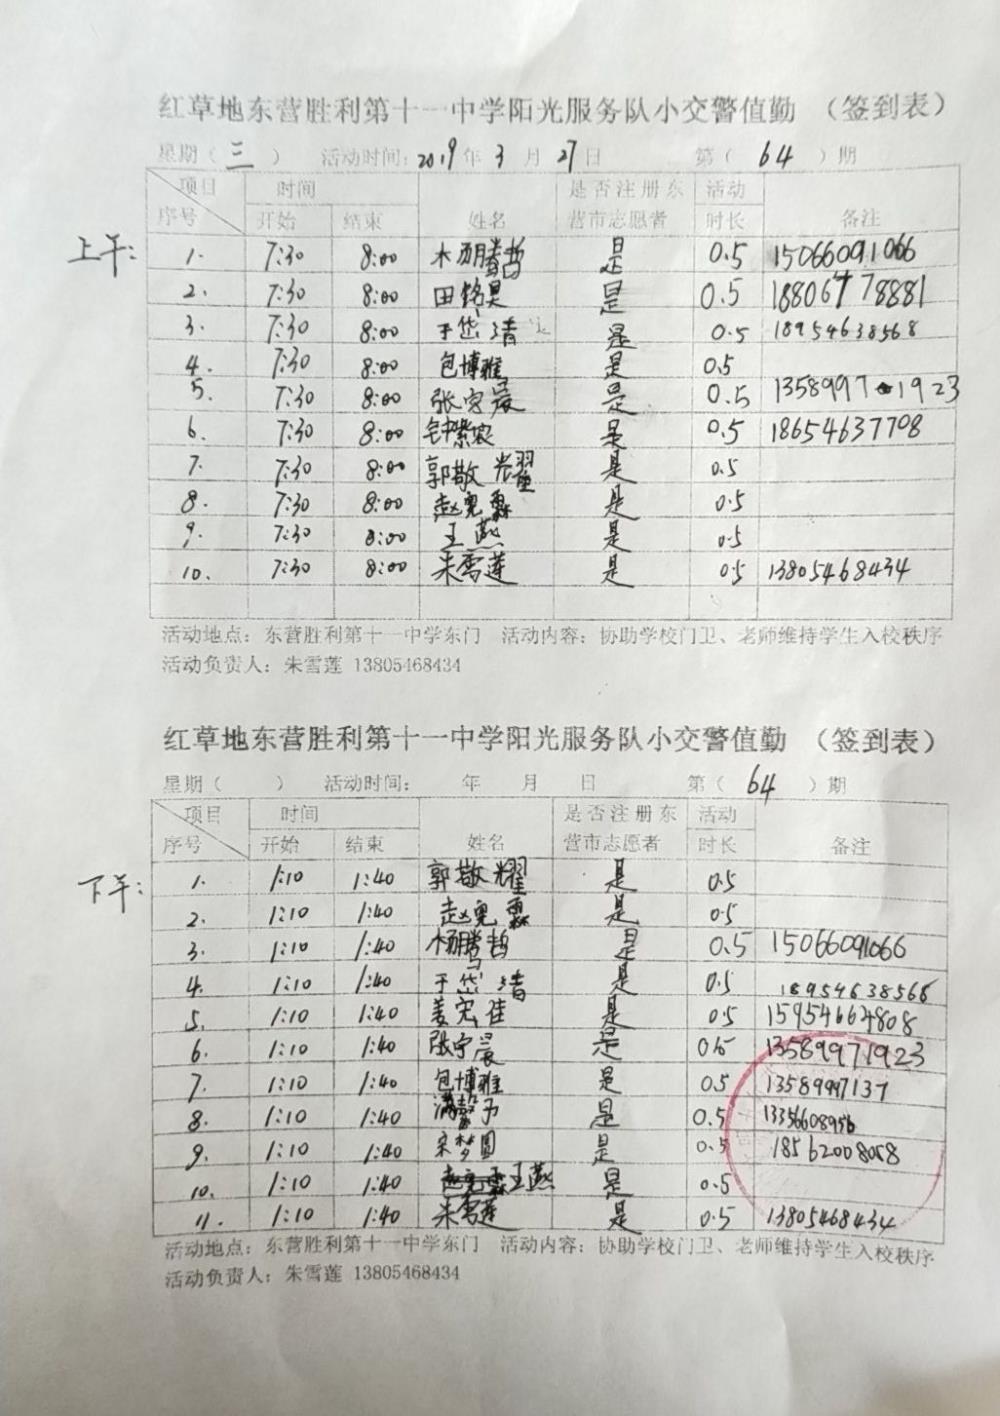 红草地东营胜利第十一中学阳光服务队小交警值勤 （签到表）
星期（ 三 ） 活动时间：2019 年 3 月 27 日 第（ 64 ）期
项目 时间 是否注册东 活动
序号 开始 结束 姓名 营市志愿者 时长 备注
上午：
1. 7:30 8:00 杨腾哲 是 0.5 15066091066
2. 7:30 8:00 田铭昊 是 0.5 18806478881
3. 7:30 8:00 于岱清 是 0.5 18954638568
4. 7:30 8:00 包博雅 是 0.5
5. 7:30 8:00 张宇晨 是 0.5 13589971923
6. 7:30 8:00 钟紫宸 是 0.5 18654637708
7. 7:30 8:00 郭敬耀 是 0.5
8. 7:30 8:00 赵宪霖 是 0.5
9. 7:30 8:00 王燕 是 0.5
10. 7:30 8:00 朱雪莲 是 0.5 13805468434
活动地点：东营胜利第十一中学东门 活动内容：协助学校门卫、老师维持学生入校秩序
活动负责人：朱雪莲 13805468434
红草地东营胜利第十一中学阳光服务队小交警值勤 （签到表）
星期（ ） 活动时间： 年 月 日 第（ 64 ）期
项目 时间 是否注册东 活动
序号 开始 结束 姓名 营市志愿者 时长 备注
下午：
1. 1:10 1:40 郭敬耀 是 0.5
2. 1:10 1:40 赵宪霖 是 0.5
3. 1:10 1:40 杨腾哲 是 0.5 15066091066
4. 1:10 1:40 于岱清 是 0.5 18954638568
5. 1:10 1:40 姜宏佳 是 0.5 15954664808
6. 1:10 1:40 张宇晨 是 0.5 13589971923
7. 1:10 1:40 包博雅 是 0.5 13589997137
8. 1:10 1:40 满馨予 是 0.5 13356608956
9. 1:10 1:40 宋梦圆 是 0.5 18562008058
10. 1:10 1:40 王燕 是 0.5
11. 1:10 1:40 朱雪莲 是 0.5 13805468434
活动地点：东营胜利第十一中学东门 活动内容：协助学校门卫、老师维持学生入校秩序
活动负责人：朱雪莲 13805468434